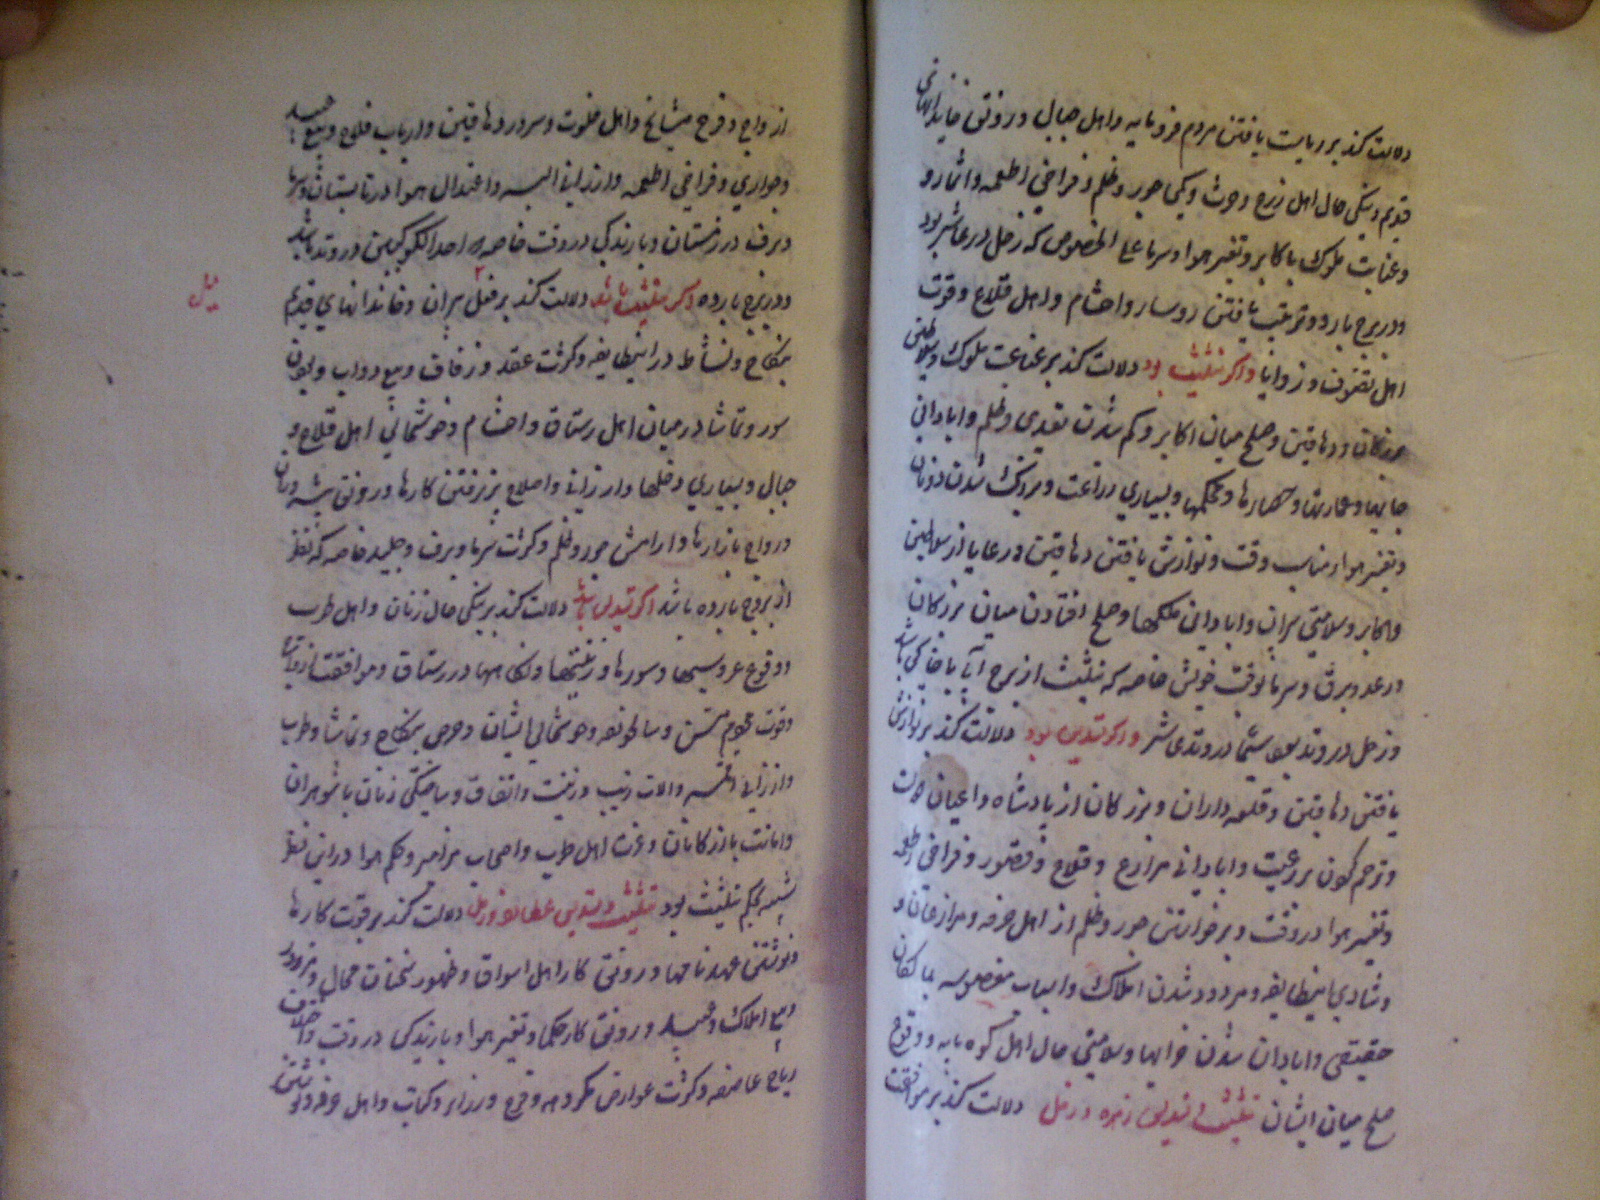 دلالت کند بر ریاست یافتن مردم فرومایه و اهل جبال و رونق خاندانهای
قدیم و نیکی حال اهل زرع و حرث و کمی جور و ظلم و فراخی اطعمه و اثمار و
و عنایت ملوک با اکابر و تغیر هوا و سرما علی الخصوص که زحل در عاشر بود
و در برج بارد و تربیت یافتن روسا و احشام و اهل قلاع و قوت
اهل تصوف و زوایا و اگر تثلیث بود دلالت کند بر عنایت ملوک و سلاطین
و دهاقین و صلح میان اکابر و کم شدن تعدی و ظلم و ابادانی
جایها و عمارتها و حصارها و محکمها و بسیاری زراعت و نیک شدن
و تغیر هوا مناسب وقت و نوازش یافتن دهاقین و رعایا از سلاطین
و اکابر و سلامتی سران و ابادانی ملکها و صلح افتادن میان بزرگان
و رعد و برق و سرما بوقت خویش خاصه که تثلیث از برج آبی یا خاکی باشد
و زحل در وتد بود سیما در وتد عاشر و اگر تسدیس بود دلالت کند بر نوازش
یافتن دهاقین و قلعه داران و بزرگان از پادشاه و اعیان
و ترحم کردن بر رعیت و ابادانی مزارع و قلاع و قصور و فراخی اطعمه
و تغیر هوا در وقت و برخواستن جور و ظلم از اهل حرفه و مزارعان و
و شادی اینطایفه و مردود شدن املاک و اسباب مغصوبه بمالکان
حقیقی و ابادان شدن خرابها و سلامتی حال اهل کوه پایه و وقوع
صلح میان ایشان تثلیث و تسدیس زهره و زحل دلالت کند بر موافقت
ازواج و فرح مشایخ و اهل خلوت و سرور دهاقین و ارباب قلاع و بیع عبید
و جواری و فراخی اطعمه و ارزانی البسه و اعتدال هوا در تابستان و سرما
و برف در زمستان و بارندگی در وقت خاصه که احد الکوکبین در وتد باشد
و در برج بارده اگر تثلیث باشد دلالت کند بر میل سران و خاندانهای قدیم
میل
بنکاح و نشاط در اینطایفه و کثرت عقد و زفاف و بیع دواب و بودن
سور و تماشا در میان اهل رستاق و احشام و خوشحالی اهل قلاع و
جبال و بسیاری دخلها و ارزانی و اصلاح پذیرفتن کارها و رونق
و رواج بازارها و ارامش جور و ظلم و کثرت سرما و برف و جلید خاصه که نظر
از بروج بارده باشد اگر تسدیس باشد دلالت کند بر نیکی حال زنان و اهل طرب
و وقوع عروسیها و سورها و زینتها و نکاحها در رستاق و موافقت ازواج
و خوشحالی ایشان و حرص بنکاح و تماشا و طرب
و ارزانی اقمشه و الات زیب و زینت و اتفاق و سازگی زنان با شوهران
و امانت بازرگانان و عزت اهل طرب و اصحاب مزامیر و حکم هوا در این نظر
شبیه بحکم تثلیث بود تثلیث و تسدیس عطارد و زحل دلالت کند بر قوت کارها
و نوشتن عهدنامها و رونق کار اهل اسواق و ظهور سخنان محال و مزور
و بیع املاک و عبید و رونق کار حکما و تغیر هوا و بارندگی در وقت و اختلاف
ریاح عاصفه و کثرت عوارض مکروهه و فرح وزرا و کتاب و اهل حرفه و نوشتن